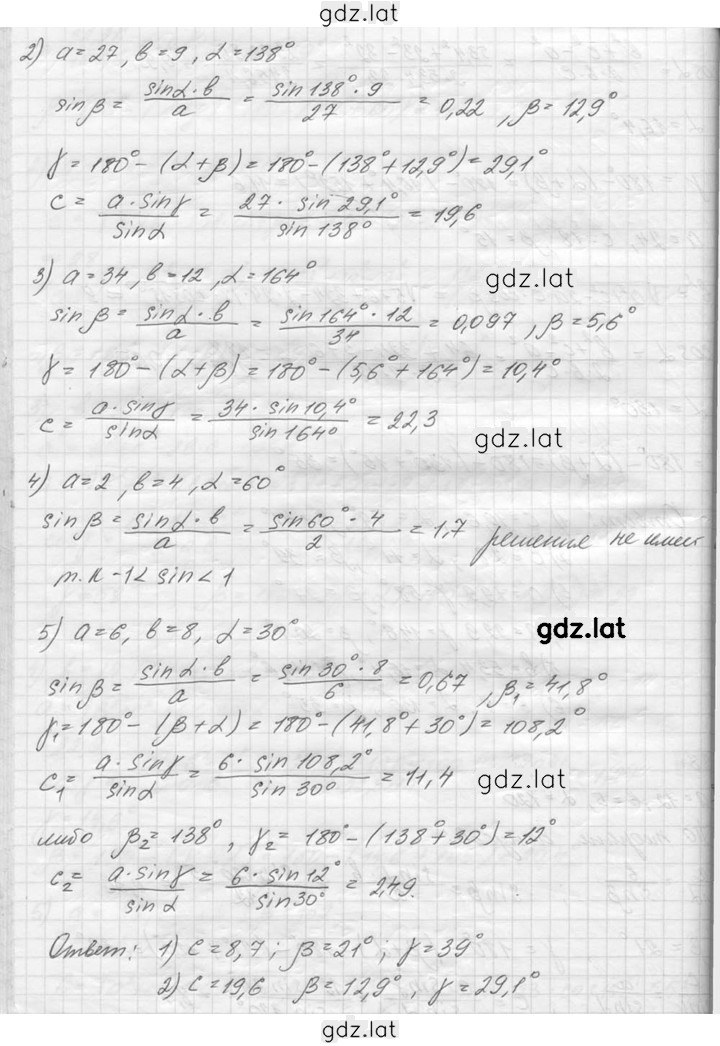 gdz.lat
2) a=27, в=9, α=138°
sinβ = sinα·в / a = sin138°·9 / 27 = 0,22, β=12,9°
γ=180°-(α+β)=180°-(138°+12,9°)=29,1°
c = a·sinγ / sinα = 27·sin29,1° / sin138° = 19,6
3) a=34, в=12, α=164°
gdz.lat
sinβ = sinα·в / a = sin164°·12 / 34 = 0,097, β=5,6°
γ=180°-(α+β)=180°-(5,6°+164°)=10,4°
c = a·sinγ / sinα = 34·sin10,4° / sin164° = 22,3
gdz.lat
4) a=2, в=4, α=60°
sinβ = sinα·в / a = sin60°·4 / 2 = 1,7 решение не имеет
т.к -1< sin < 1
5) a=6, в=8, α=30°
gdz.lat
sinβ = sinα·в / a = sin30°·8 / 6 = 0,67, β₁=41,8°
γ₁=180°-(β+α)=180°-(41,8°+30°)=108,2°
c₁ = a·sinγ / sinα = 6·sin108,2° / sin30° = 11,4
gdz.lat
либо β₂=138°, γ₂=180°-(138°+30°)=12°
c₂ = a·sinγ / sinα = 6·sin12° / sin30° = 2,49.
Ответ: 1) c=8,7; β=21°; γ=39°
2) c=19,6 β=12,9°, γ=29,1°
gdz.lat